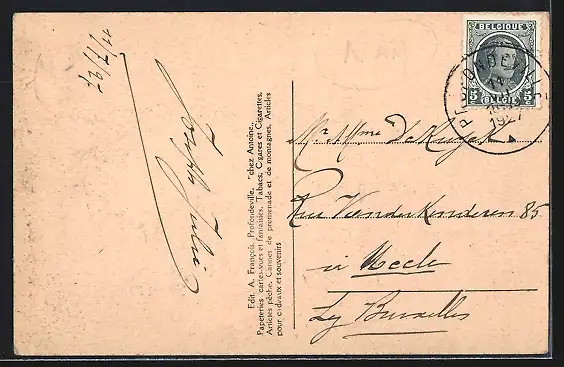 11/7/27
Edit. A. François, Profondeville, "chez Antoine„
Papeteries cartes-vues et fantaisies, Tabacs, Cigares et Cigarettes,
Articles pêche, Cannes de promenade et de montagnes, Articles
pour cadeaux et souvenirs
BELGIQUE
5 5
BELGIE
1927
Mr & Mme De
Rue Vanderkinderen 85
à Uccle
Lez Bruxelles